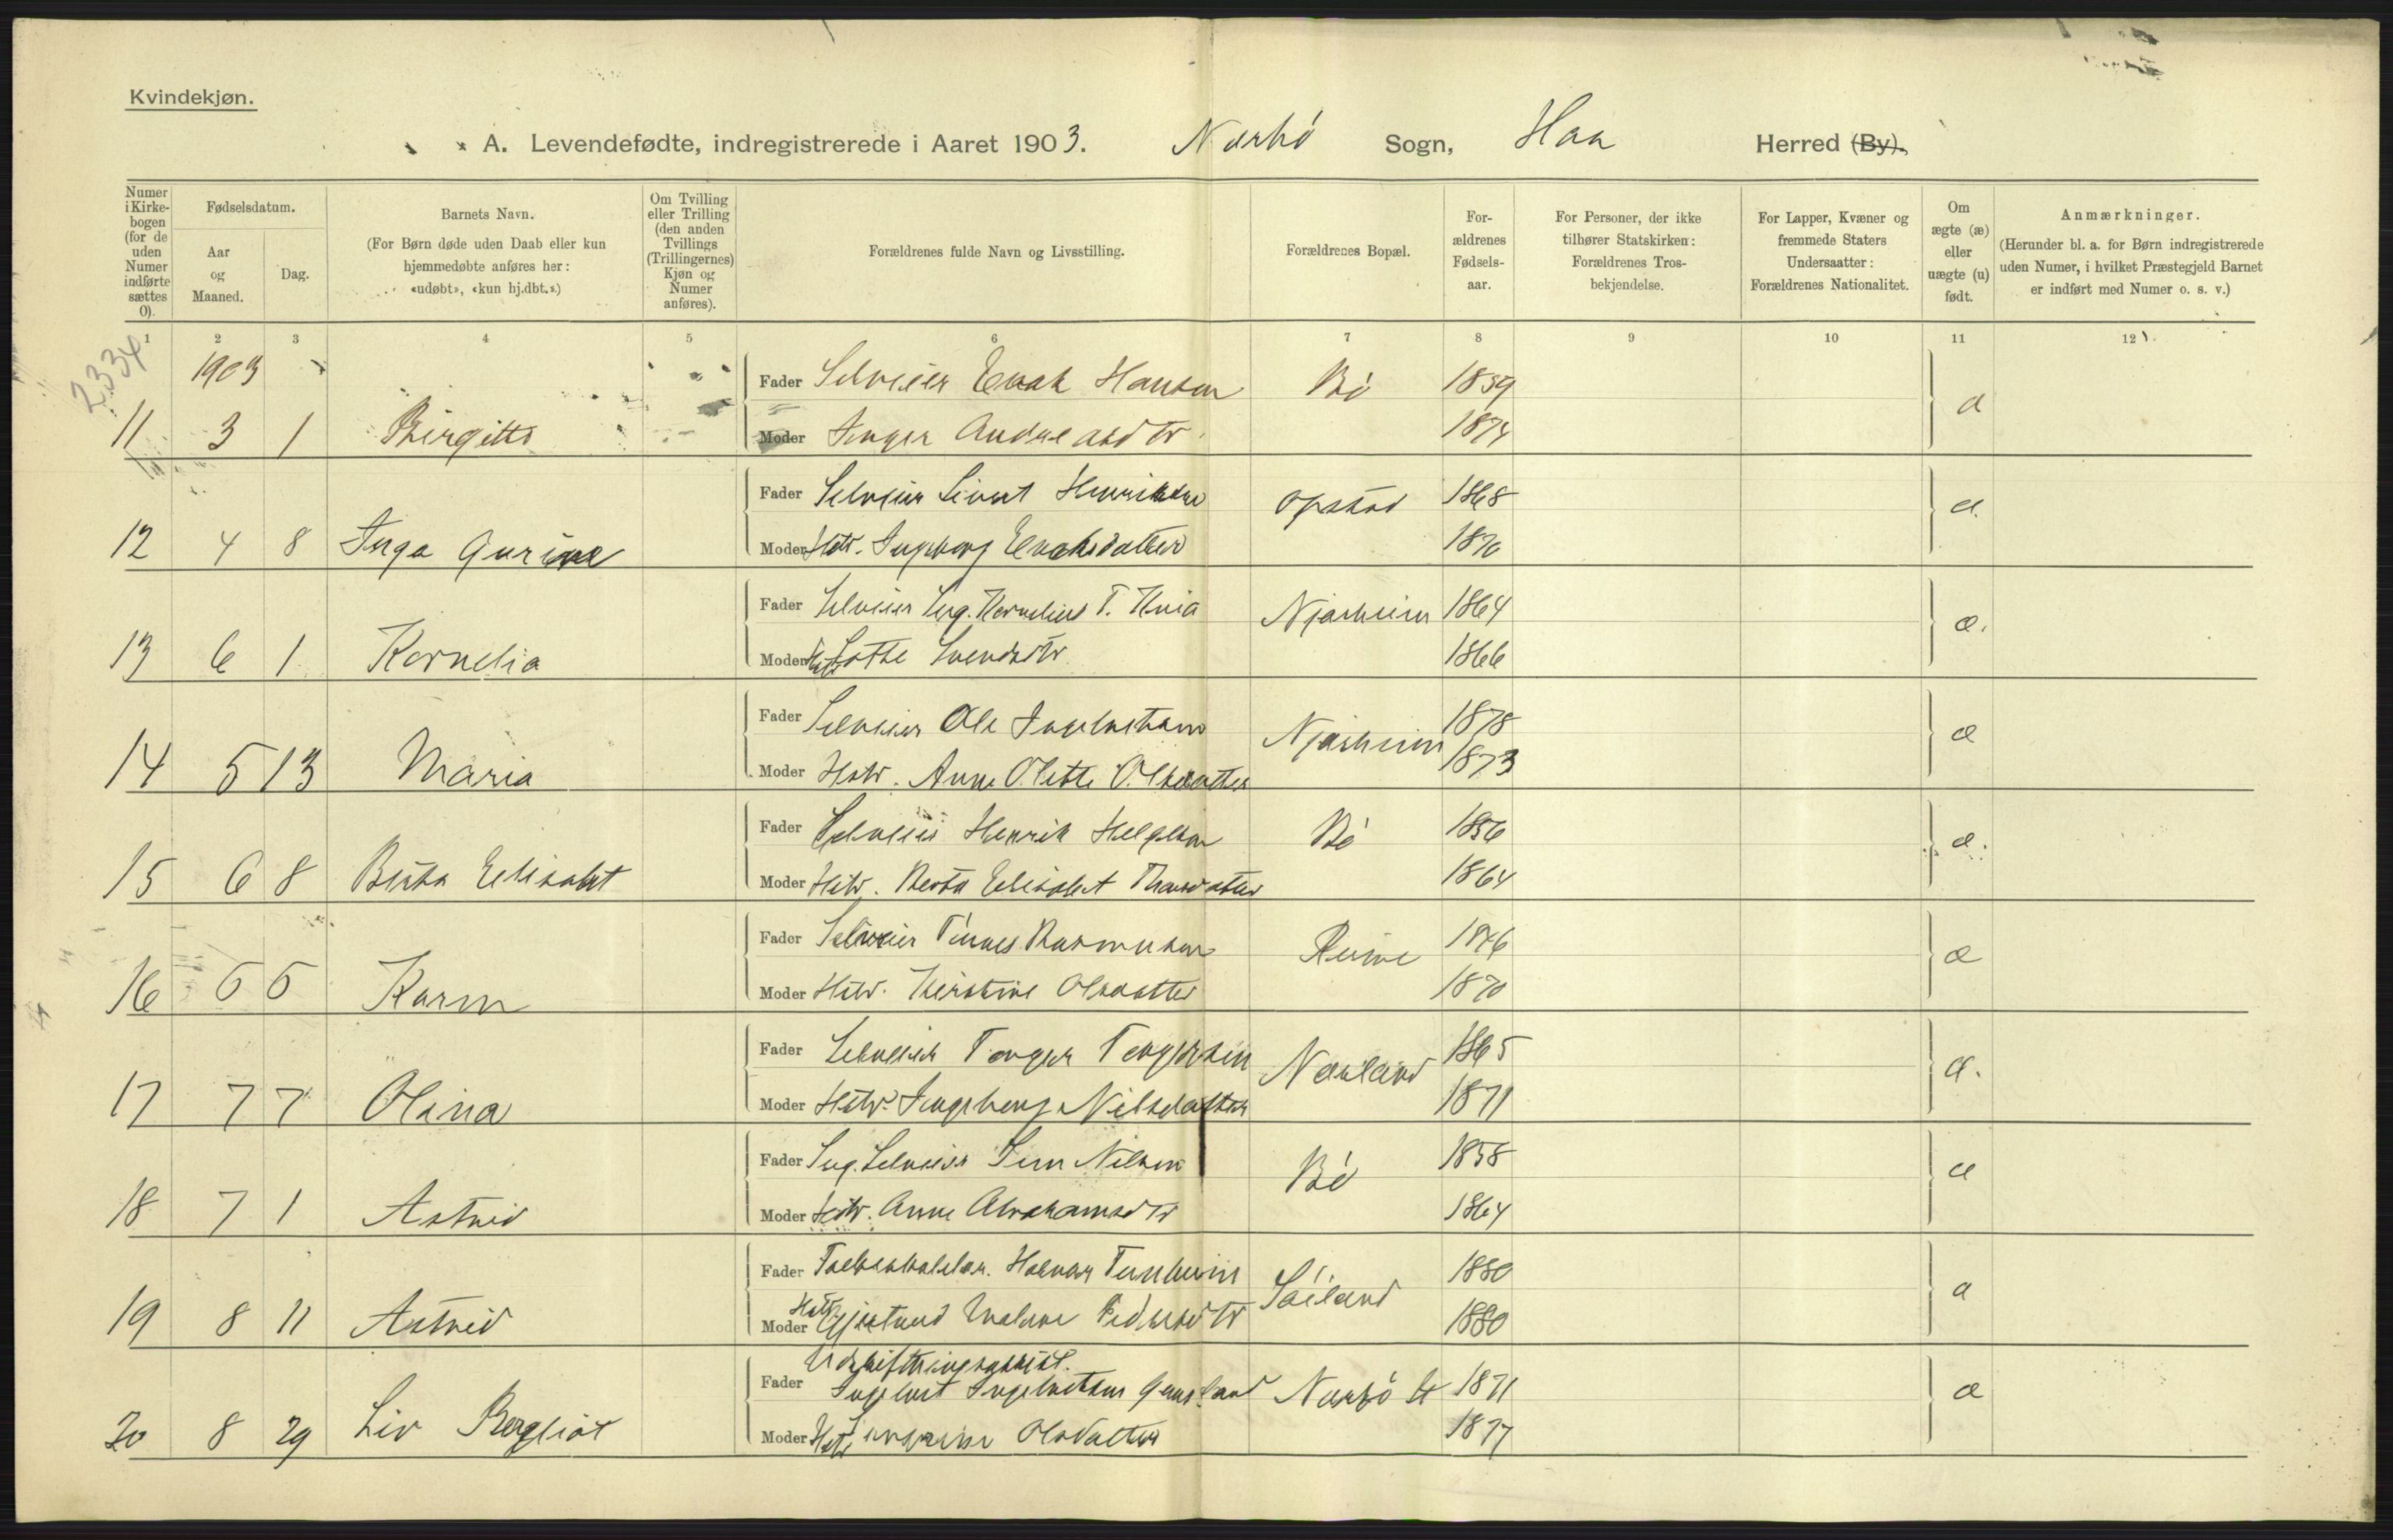 Kvindekjøn.
A. Levendefødte, indregistrerede i Aaret 1903. Nærbø Sogn, Haa Herred (By).
Numer i Kirkebogen (for de uden Numer indførte sættes 0).
Fødselsdatum.
Aar og Maaned.
Dag.
Barnets Navn.
(For Børn døde uden Daab eller kun hjemmedøbte anføres her: «udøbt», «kun hj.dbt.».)
Om Tvilling eller Trilling (den anden Tvillings (Trillingernes) Kjøn og Numer anføres).
Forældrenes fulde Navn og Livsstilling.
Forældrenes Bopæl.
Forældrenes Fødselsaar.
For Personer, der ikke tilhører Statskirken: Forældrenes Trosbekjendelse.
For Lapper, Kvæner og fremmede Staters Undersaatter: Forældrenes Nationalitet.
Om ægte (æ) eller uægte (u) født.
Anmærkninger.
(Herunder bl. a. for Børn indregistrerede uden Numer, i hvilket Præstegjeld Barnet er indført med Numer o. s. v.)
1 2 3 4 5 6 7 8 9 10 11 12
2334
1903 Fader Selveier Enok Hansen Bø 1859 æ
11 3 1 Birgitte Moder Inger Andreasdtr 1874
Fader Selveier Sivert Henriksen Opstad 1868 æ.
12 4 8 Inga Gurine Moder Hstr. Ingeborg Enoksdatter 1870
Fader Selveier Kornelius T. Njærheim 1864 æ.
13 6 1 Kornelia Moder Hstr Lothe Svendsdtr 1866
Fader Selveier Ole Ingebretsen Njærheim 1878 æ
14 5 13 Maria Moder Hstr. Anne Olette Olsdatter 1873
Fader Selveier Henrik Helgesen Bø 1856 æ.
15 6 8 Berta Elisabet Moder Hstr. Berta Elisabet 1864
Fader Selveier Tønnes Rasmusen Reime 1846 æ
16 5 5 Karen Moder Hstr. Kirstine Olsdatter 1870
Fader Selveier Torger Torgersen Nærland 1865 æ.
17 7 7 Olina Moder Hstr. Ingeborg Nilsdatter 1871
Fader Selveier Nilsen Bø 1858 æ
18 7 1 Astrid Moder Hstr. Anne Abrahamsdtr 1864
Fader Tunheim 1880 æ
19 8 11 Astrid Moder Hstr Gjertrud Malene Pedersdtr 1880
Udskiftningsassist.
Fader Ingebret Ingebretsen Nærbø St 1871 æ
20 8 29 Liv Bergliot Moder Hstr Olsdatter 1877